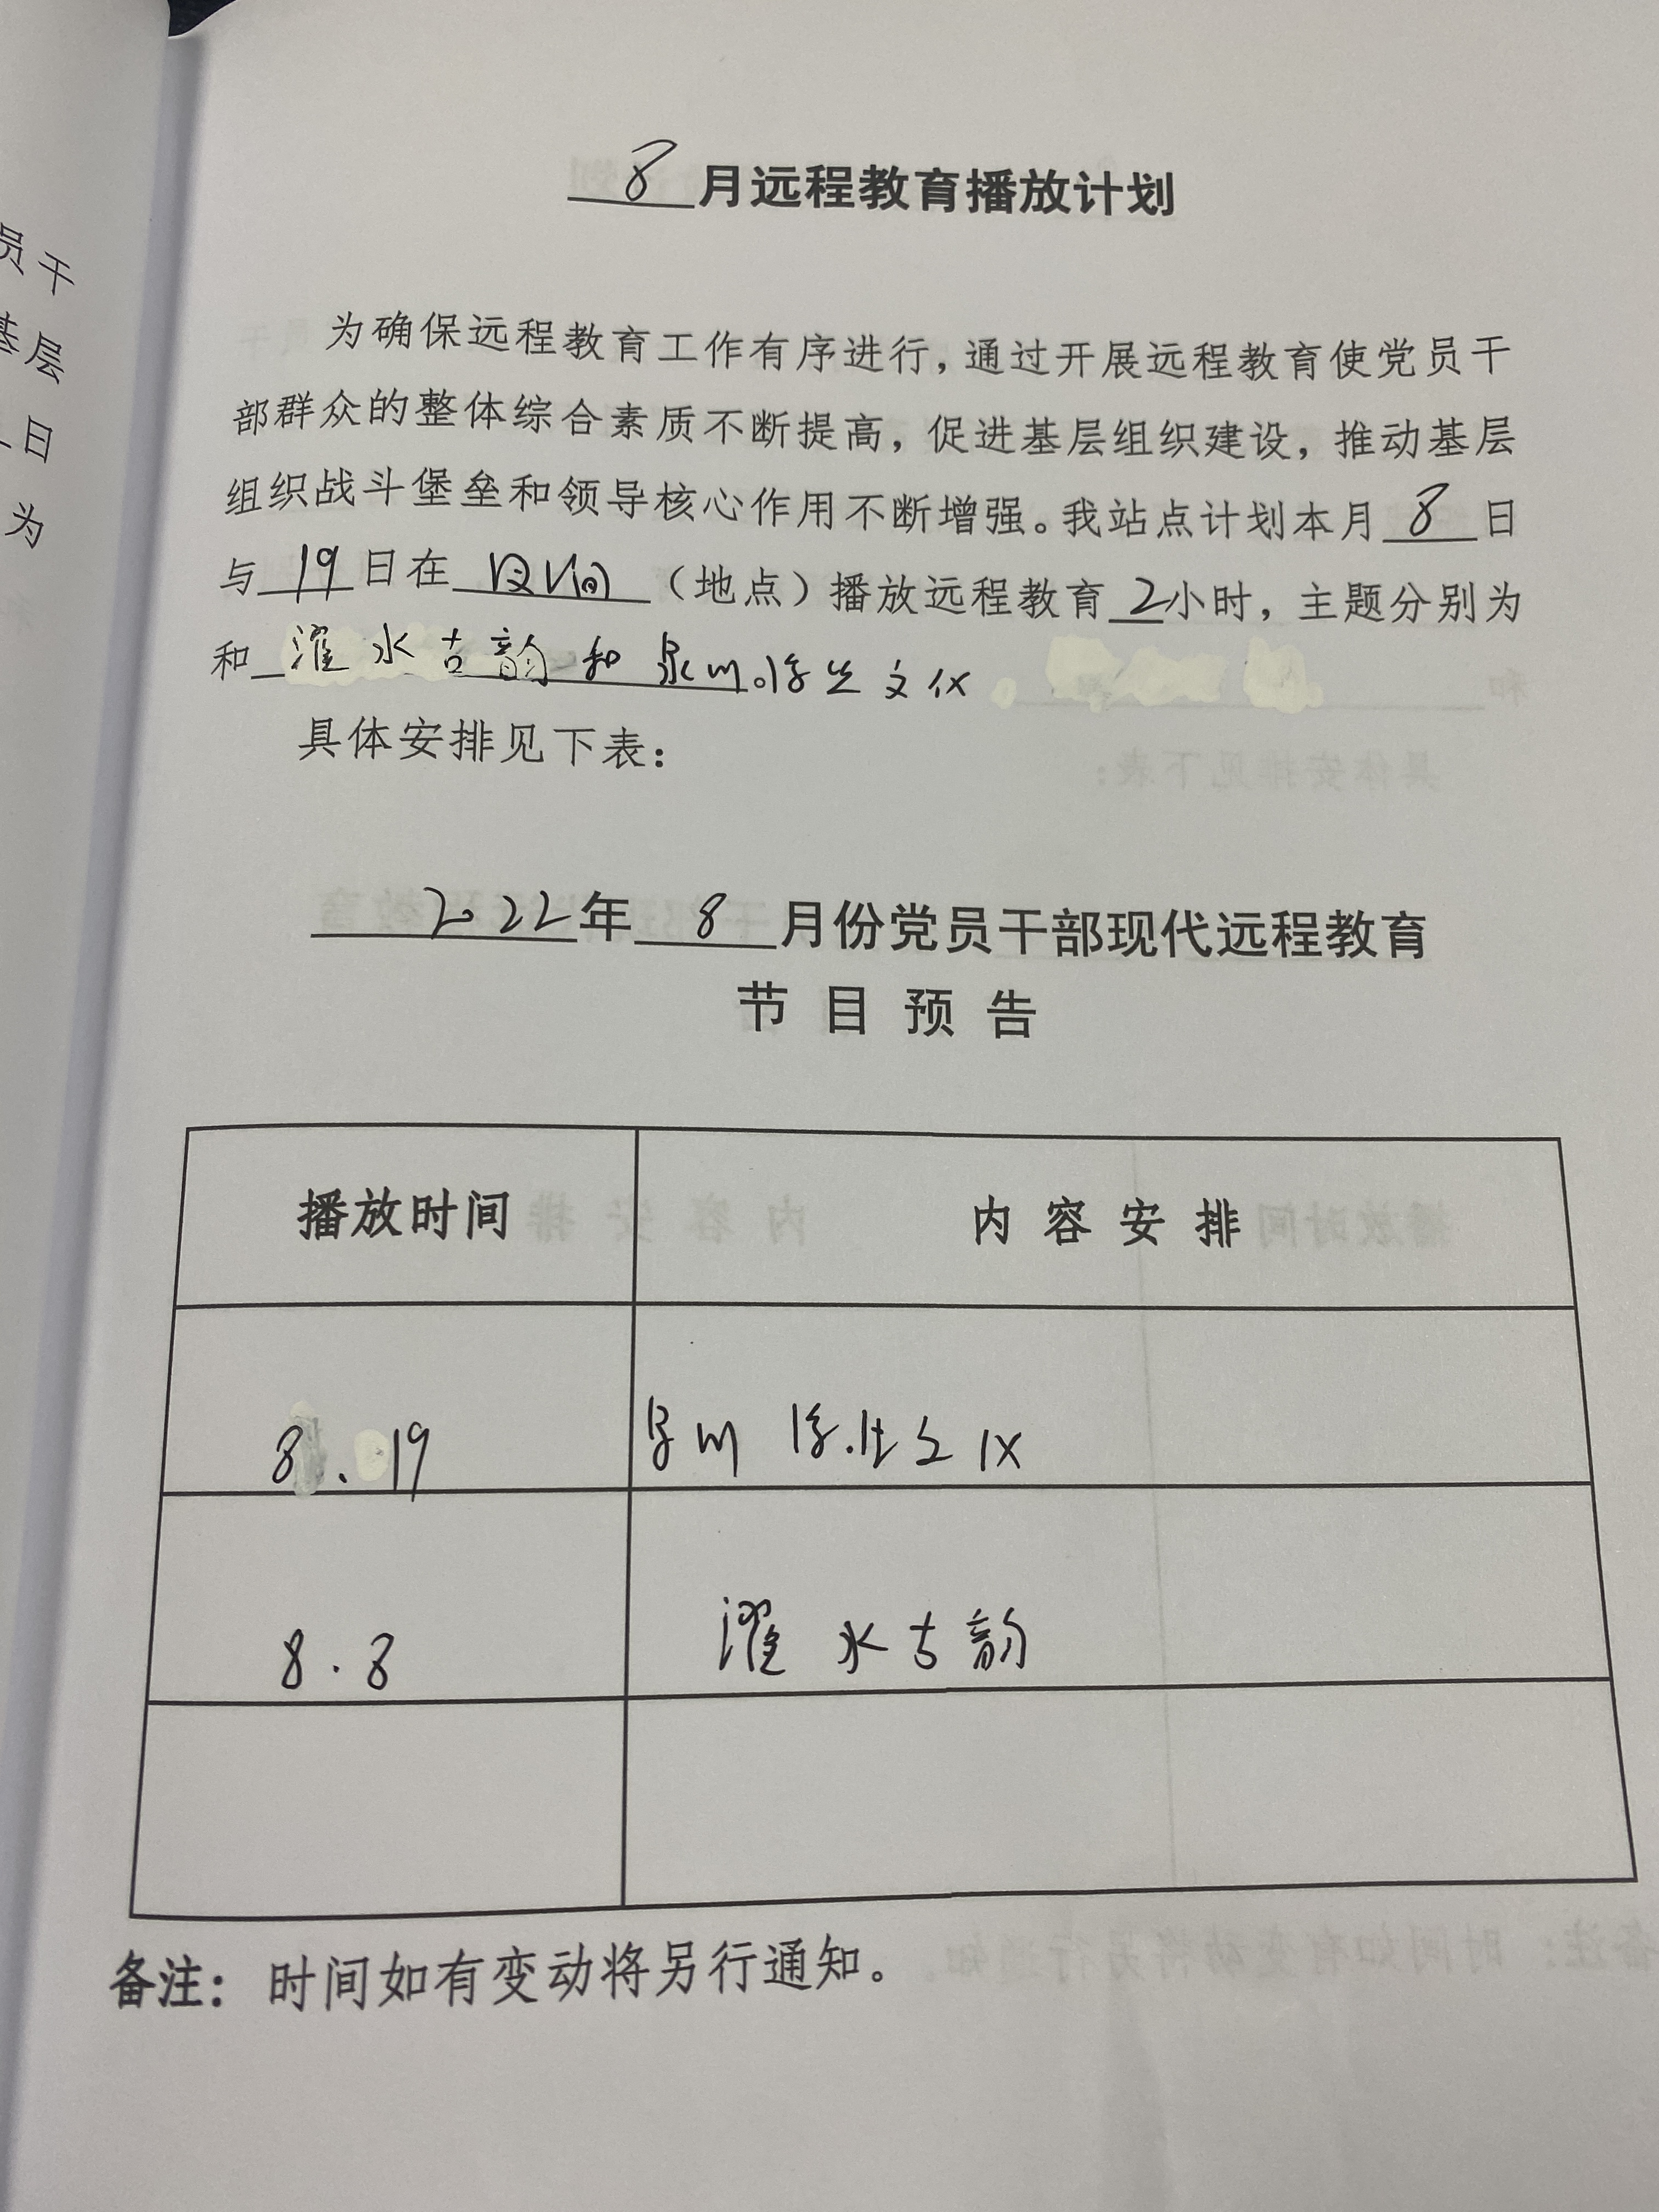 8月远程教育播放计划
为确保远程教育工作有序进行，通过开展远程教育使党员干
部群众的整体综合素质不断提高，促进基层组织建设，推动基层
组织战斗堡垒和领导核心作用不断增强。我站点计划本月8日
与19日在（地点）播放远程教育2小时，主题分别为
和濯水古韵和泉州 文化
具体安排见下表：
2022年8月份党员干部现代远程教育
节目预告
播放时间 内容安排
8.19 泉州 文化
8.8 濯水古韵
备注：时间如有变动将另行通知。
员干
基层
日
为